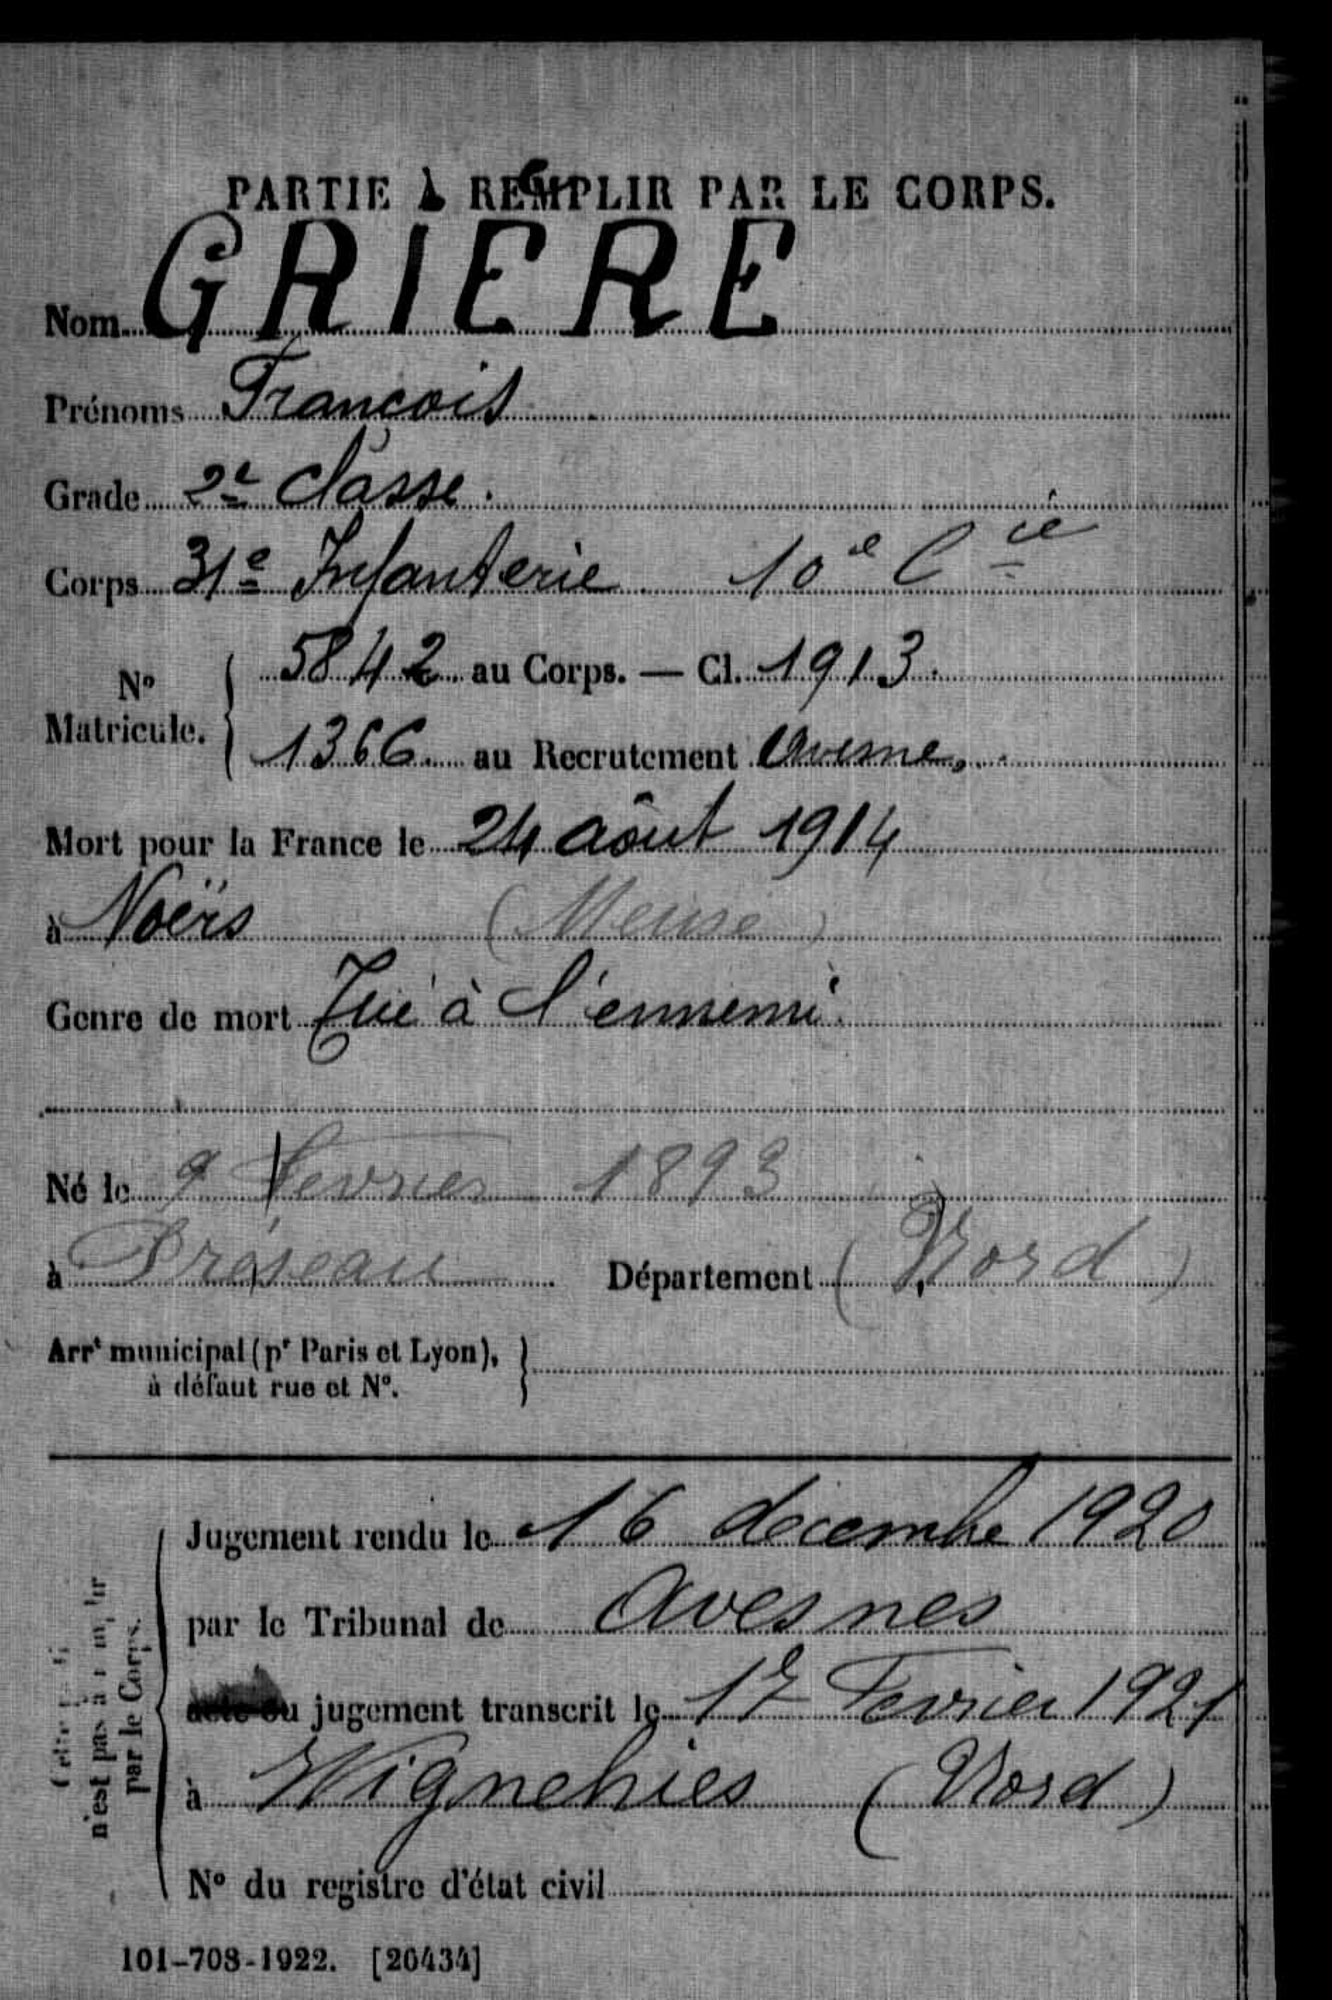 PARTIE À REMPLIR PAR LE CORPS.
Nom GRIERE
Prénoms Francois
Grade 2e classe.
Corps 31e Infanterie 10e Cie
No Matricule. { 5842 au Corps. — Cl. 1913.
1366 au Recrutement Avesne.
Mort pour la France le 24 août 1914
à Noërs (Meuse)
Genre de mort Tué à l'ennemi.
Né le 9 Fevrier 1893
à Préseau Département (Nord)
Arrt municipal (pr Paris et Lyon), à défaut rue et No. }
Jugement rendu le 16 decembre 1920
par le Tribunal de Avesnes
acte ou jugement transcrit le 17 Fevrier 1921
à Wignehies (Nord)
No du registre d'état civil
n'est pas à remplir
par le Corps.
101-708-1922. [26434]